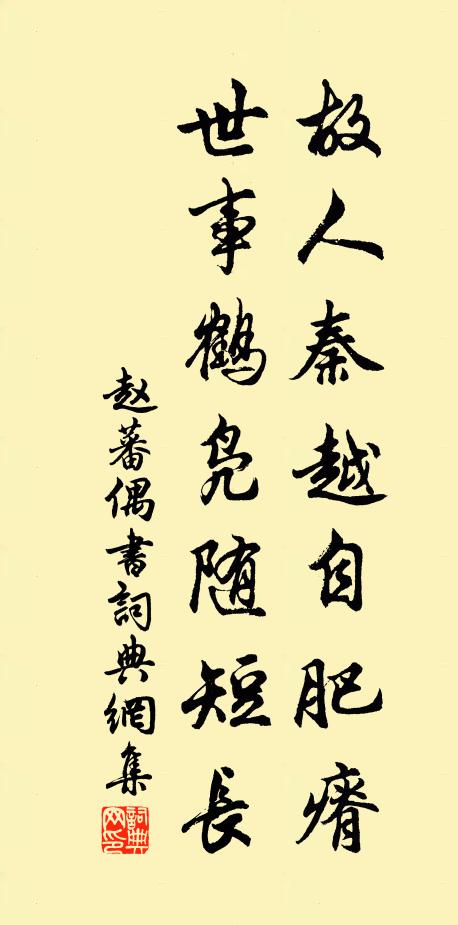 故人秦越自肥瘠
世事鹤凫随短長
赵蕃偶書詞典網集
詞典
网印